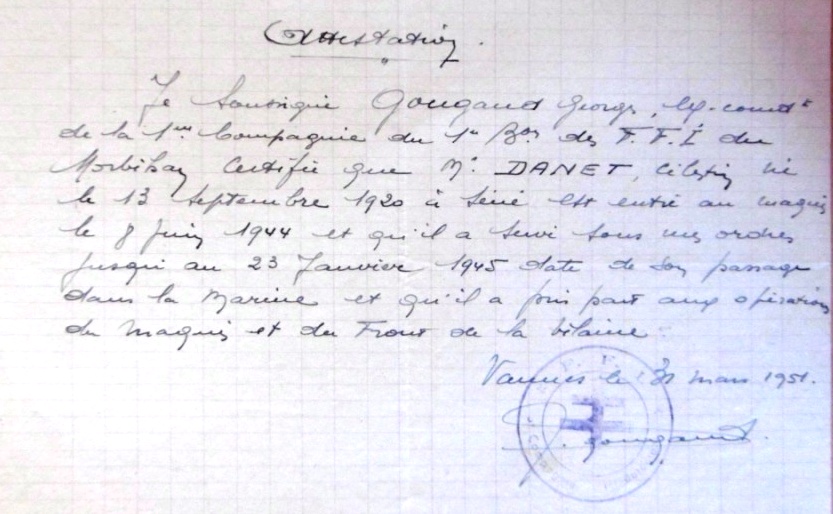 Attestation.
Je Soussigné Gougaud George, ex-comdt
de la 1ère Compagnie du 1er Bon des F.F.I du
Morbihan Certifie que Mr DANET, Célestin né
le 13 Septembre 1920 à Séné est entré au maquis
le 8 Juin 1944 et qu'il a servi sous mes ordres
jusqu'au 23 Janvier 1945 date de son passage
dans la Marine et qu'il a pris part aux opérations
du maquis et du Front de la Vilaine.
Vannes le 31 mars 1951.
Gougaud.